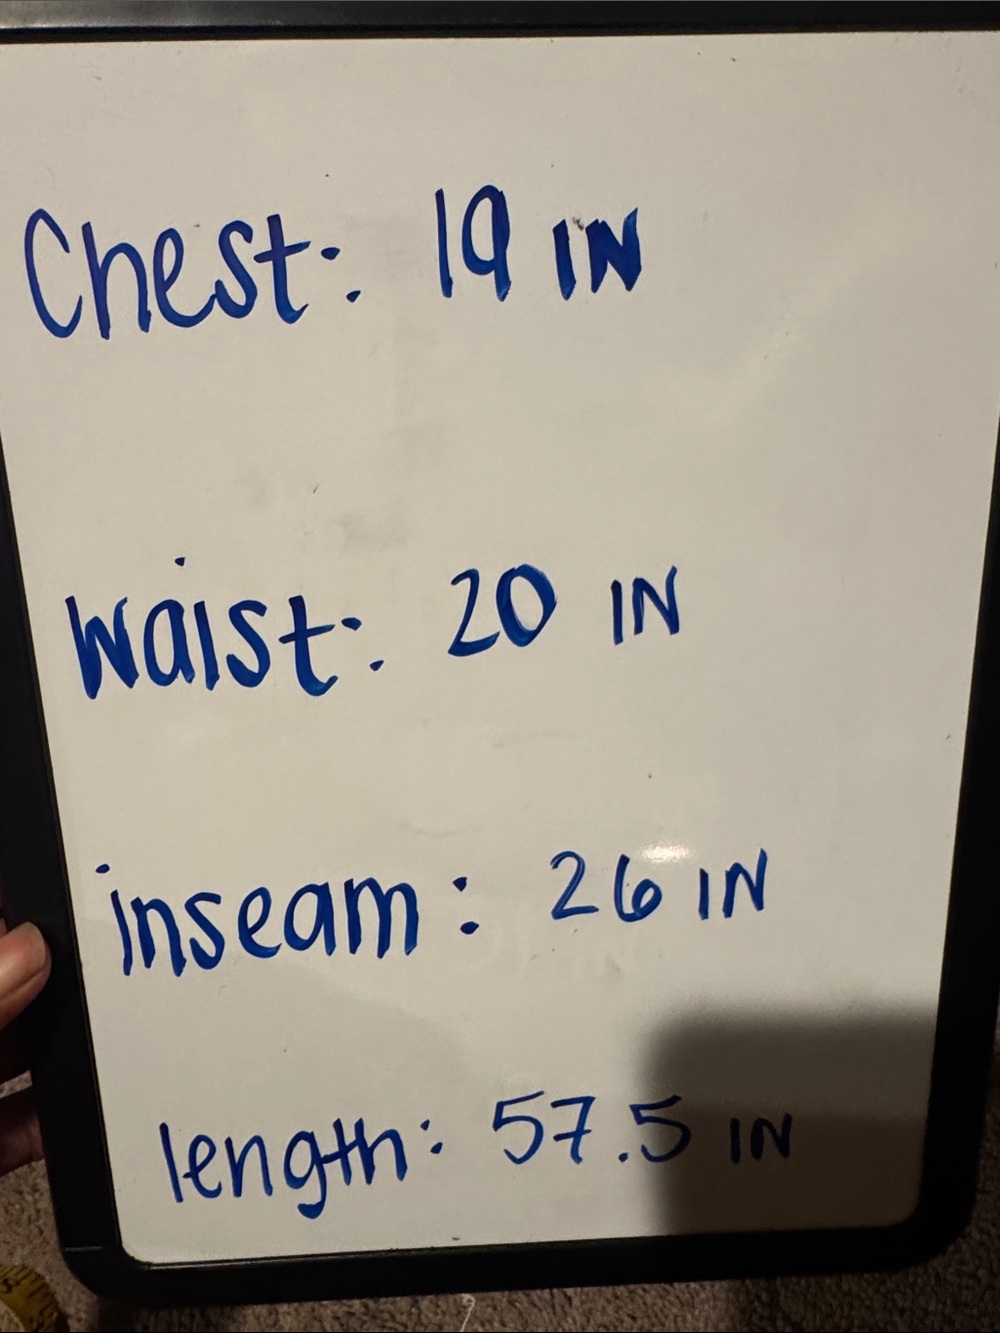 Chest: 19 IN
waist: 20 IN
inseam: 26 IN
length: 57.5 IN